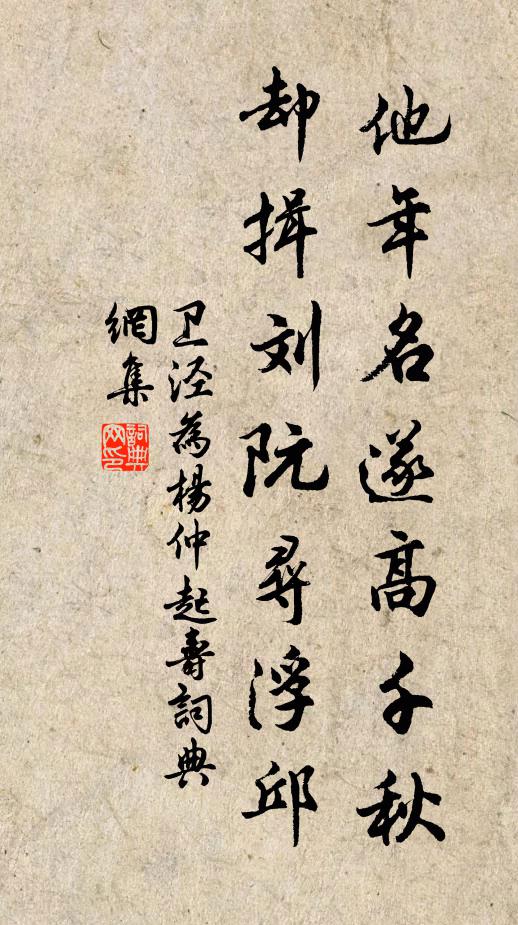 他年名遂高千秋
却揖刘阮尋浮邱
卫泾為楊仲起壽詞典
網集
詞典网印